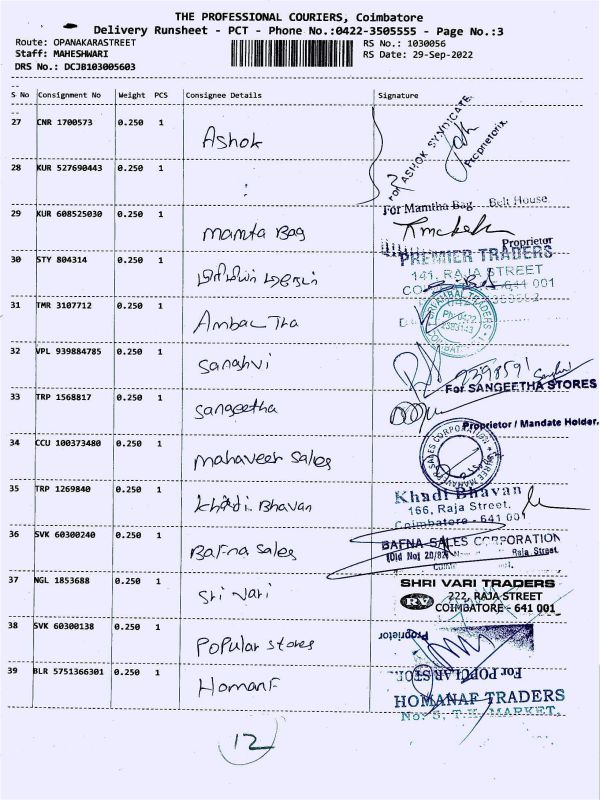 THE PROFESSIONAL COURIERS, Coimbatore
Delivery Runsheet - PCT - Phone No.:0422-3505555 - Page No.:3
Route: OPANAKARASTREET RS No.: 1030056
Staff: MAHESHWARI RS Date: 29-Sep-2022
DRS No.: DCJB103005603
S No Consignment No Weight PCS Consignee Details Signature
27 CNR 1700573 0.250 1 Ashok
FOR ASHOK SYNDICATE
Proprietorix.
28 KUR 527690443 0.250 1 :
29 KUR 608525030 0.250 1 Mamta Bag
For Mamtha Bag Belt House
Proprietor
30 STY 804314 0.250 1
PREMIER TRADERS
141, RAJA STREET
641 001
31 TMR 3107712 0.250 1 Ambac Tha
TRADERS
Ph: 0422
32 VPL 939884785 0.250 1 Sanghvi
33 TRP 1568817 0.250 1 Sangeetha
For SANGEETHA STORES
Proprietor / Mandate Holder.
34 CCU 100373480 0.250 1 Mahaveer Sales
SHREE MAHAVEER SALES CORPORATION
35 TRP 1269840 0.250 1 Khadi Bhavan
Khadi Bhavan
166, Raja Street,
Coimbatore - 641 001
36 SVK 60300240 0.250 1 Bafna Sales
BAFNA SALES CORPORATION
(Old No] 20/82 Raja Street
37 NGL 1853688 0.250 1 Sri Vari
SHRI VARI TRADERS
RV 222, RAJA STREET
COIMBATORE - 641 001
38 SVK 60300138 0.250 1 Popular Stores
Proprietor
For POPULAR STOR
39 BLR 5751366301 0.250 1 Homanf
HOMANAF TRADERS
No: 5, T.K. MARKET,
12